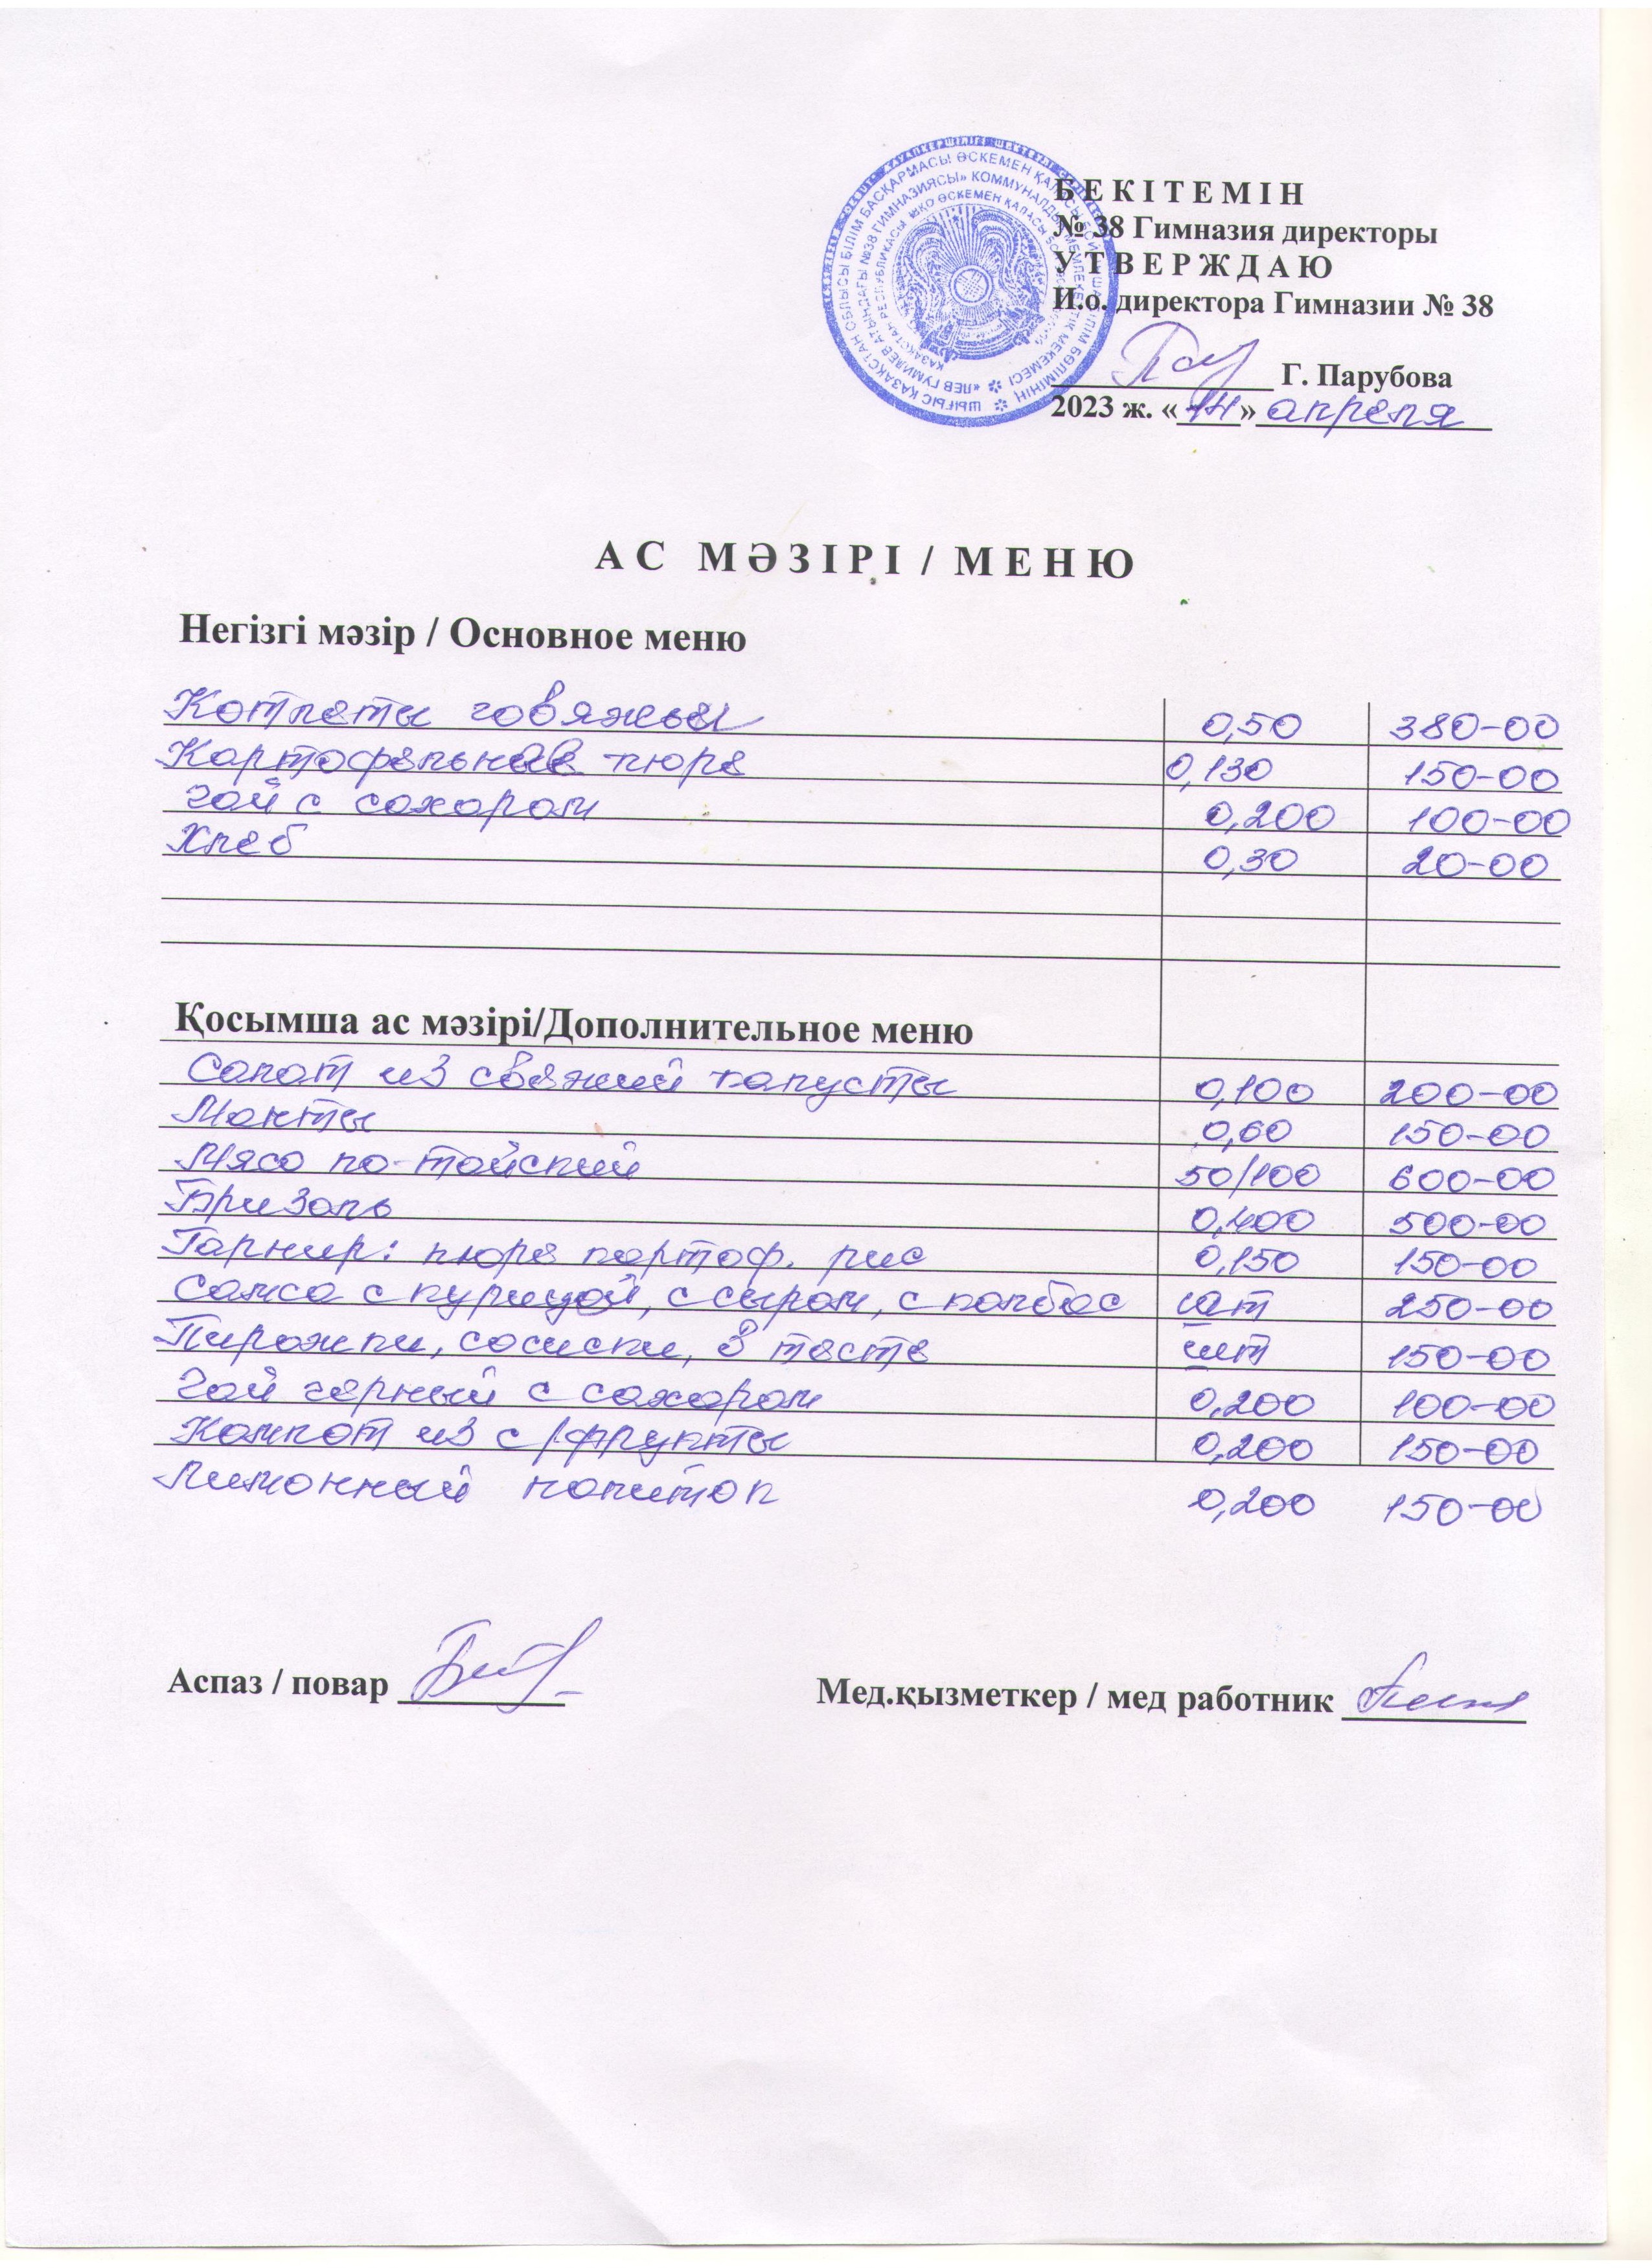 БЕКІТЕМІН
№ 38 Гимназия директоры
УТВЕРЖДАЮ
И.о. директора Гимназии № 38
Г. Парубова
2023 ж. «14» апреля
АС МӘЗІРІ / МЕНЮ
Негізгі мәзір / Основное меню
Котлеты говяжьи 0,50 380-00
Картофельное пюре 0,130 150-00
Чай с сахаром 0,200 100-00
Хлеб 0,30 20-00
Қосымша ас мәзірі/Дополнительное меню
Салат из свяжий капусты 0,100 200-00
Манты 0,60 150-00
Мясо по-тайский 50/100 600-00
Бризоль 0,400 500-00
Гарнир: пюре картоф. рис 0,150 150-00
Самса с курицой, с сыром, с колбас шт 250-00
Пирожки, сосиски, в тесте шт 150-00
Чай черный с сахаром 0,200 100-00
Компот из с/фрукты 0,200 150-00
Лимонный напиток 0,200 150-00
Аспаз / повар
Мед.қызметкер / мед работник